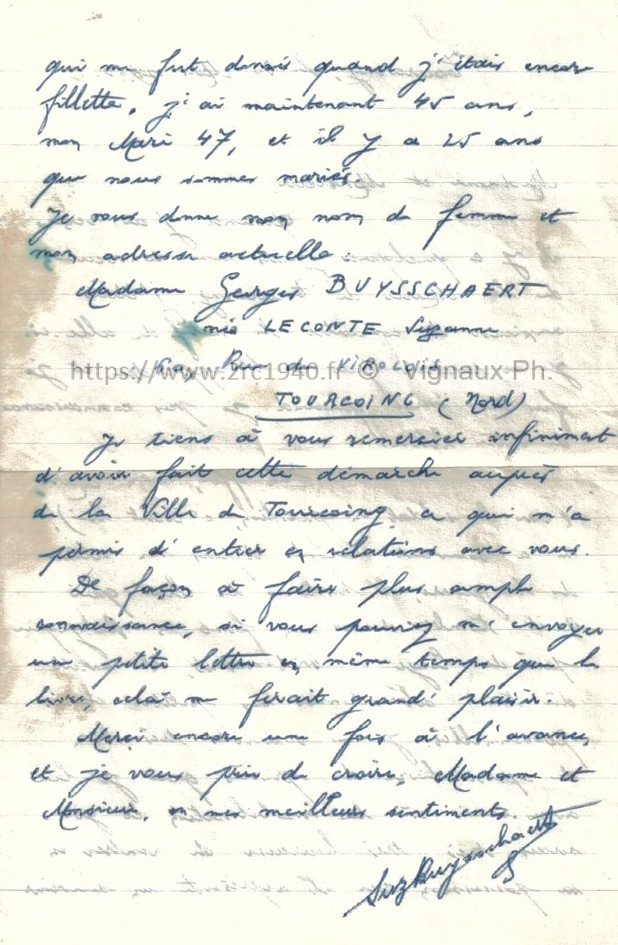 qui me fut donné quand j'étais encore
fillette, j'ai maintenant 45 ans,
mon Mari 47, et il y a 25 ans
que nous sommes mariés.
Je vous donne mon nom de femme et
mon adresse actuelle
Madame Georges BUYSSCHAERT
née LECONTE Suzanne
Rue du
https://www.2rc1940.fr © Vignaux Ph.
TOURCOING (Nord)
Je tiens à vous remercier infiniment
d'avoir fait cette démarche auprès
de la Ville de Tourcoing, ce qui m'a
permis d'entrer en relations avec vous.
De façon à faire plus ample
connaissance, si vous pouviez m'envoyer
une petite lettre en même temps que le
livre, celà me ferait grand' plaisir.
Merci encore une fois à l'avance,
et je vous prie de croire, Madame et
Monsieur, en mes meilleurs sentiments.
SuzBuysschaert